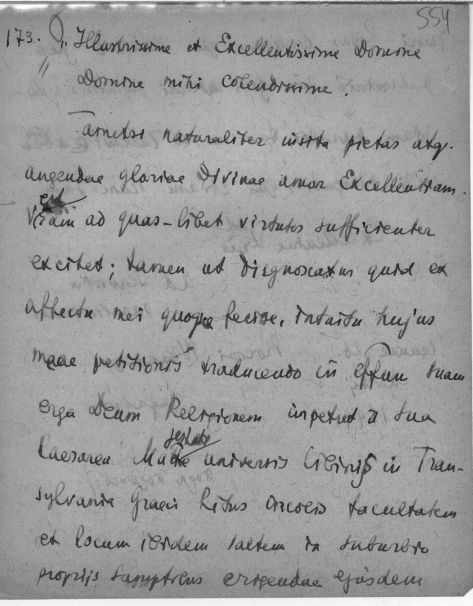 554
173. Illustrissime et Excellentissime Domine
Domine mihi colendissime.
Tametsi naturaliter insita pietas atq.
augendae gloriae Divinae amor Excellentiam
Vram ad quas-libet virtutes sufficienter
excitet; tamen ut dignoscatur quid ex
affectu mei quoque fecise, intuitu hujus
meae petitionis traducendo in effum suam
erga Deum Religionem impetret a Sua
Caesarea universis Cibinij in Tran-
sylvania Graeci Ritus Incolis facultatem
et locum ibidem saltem in suburbio
proprijs sumptibus erigendae ejusdem